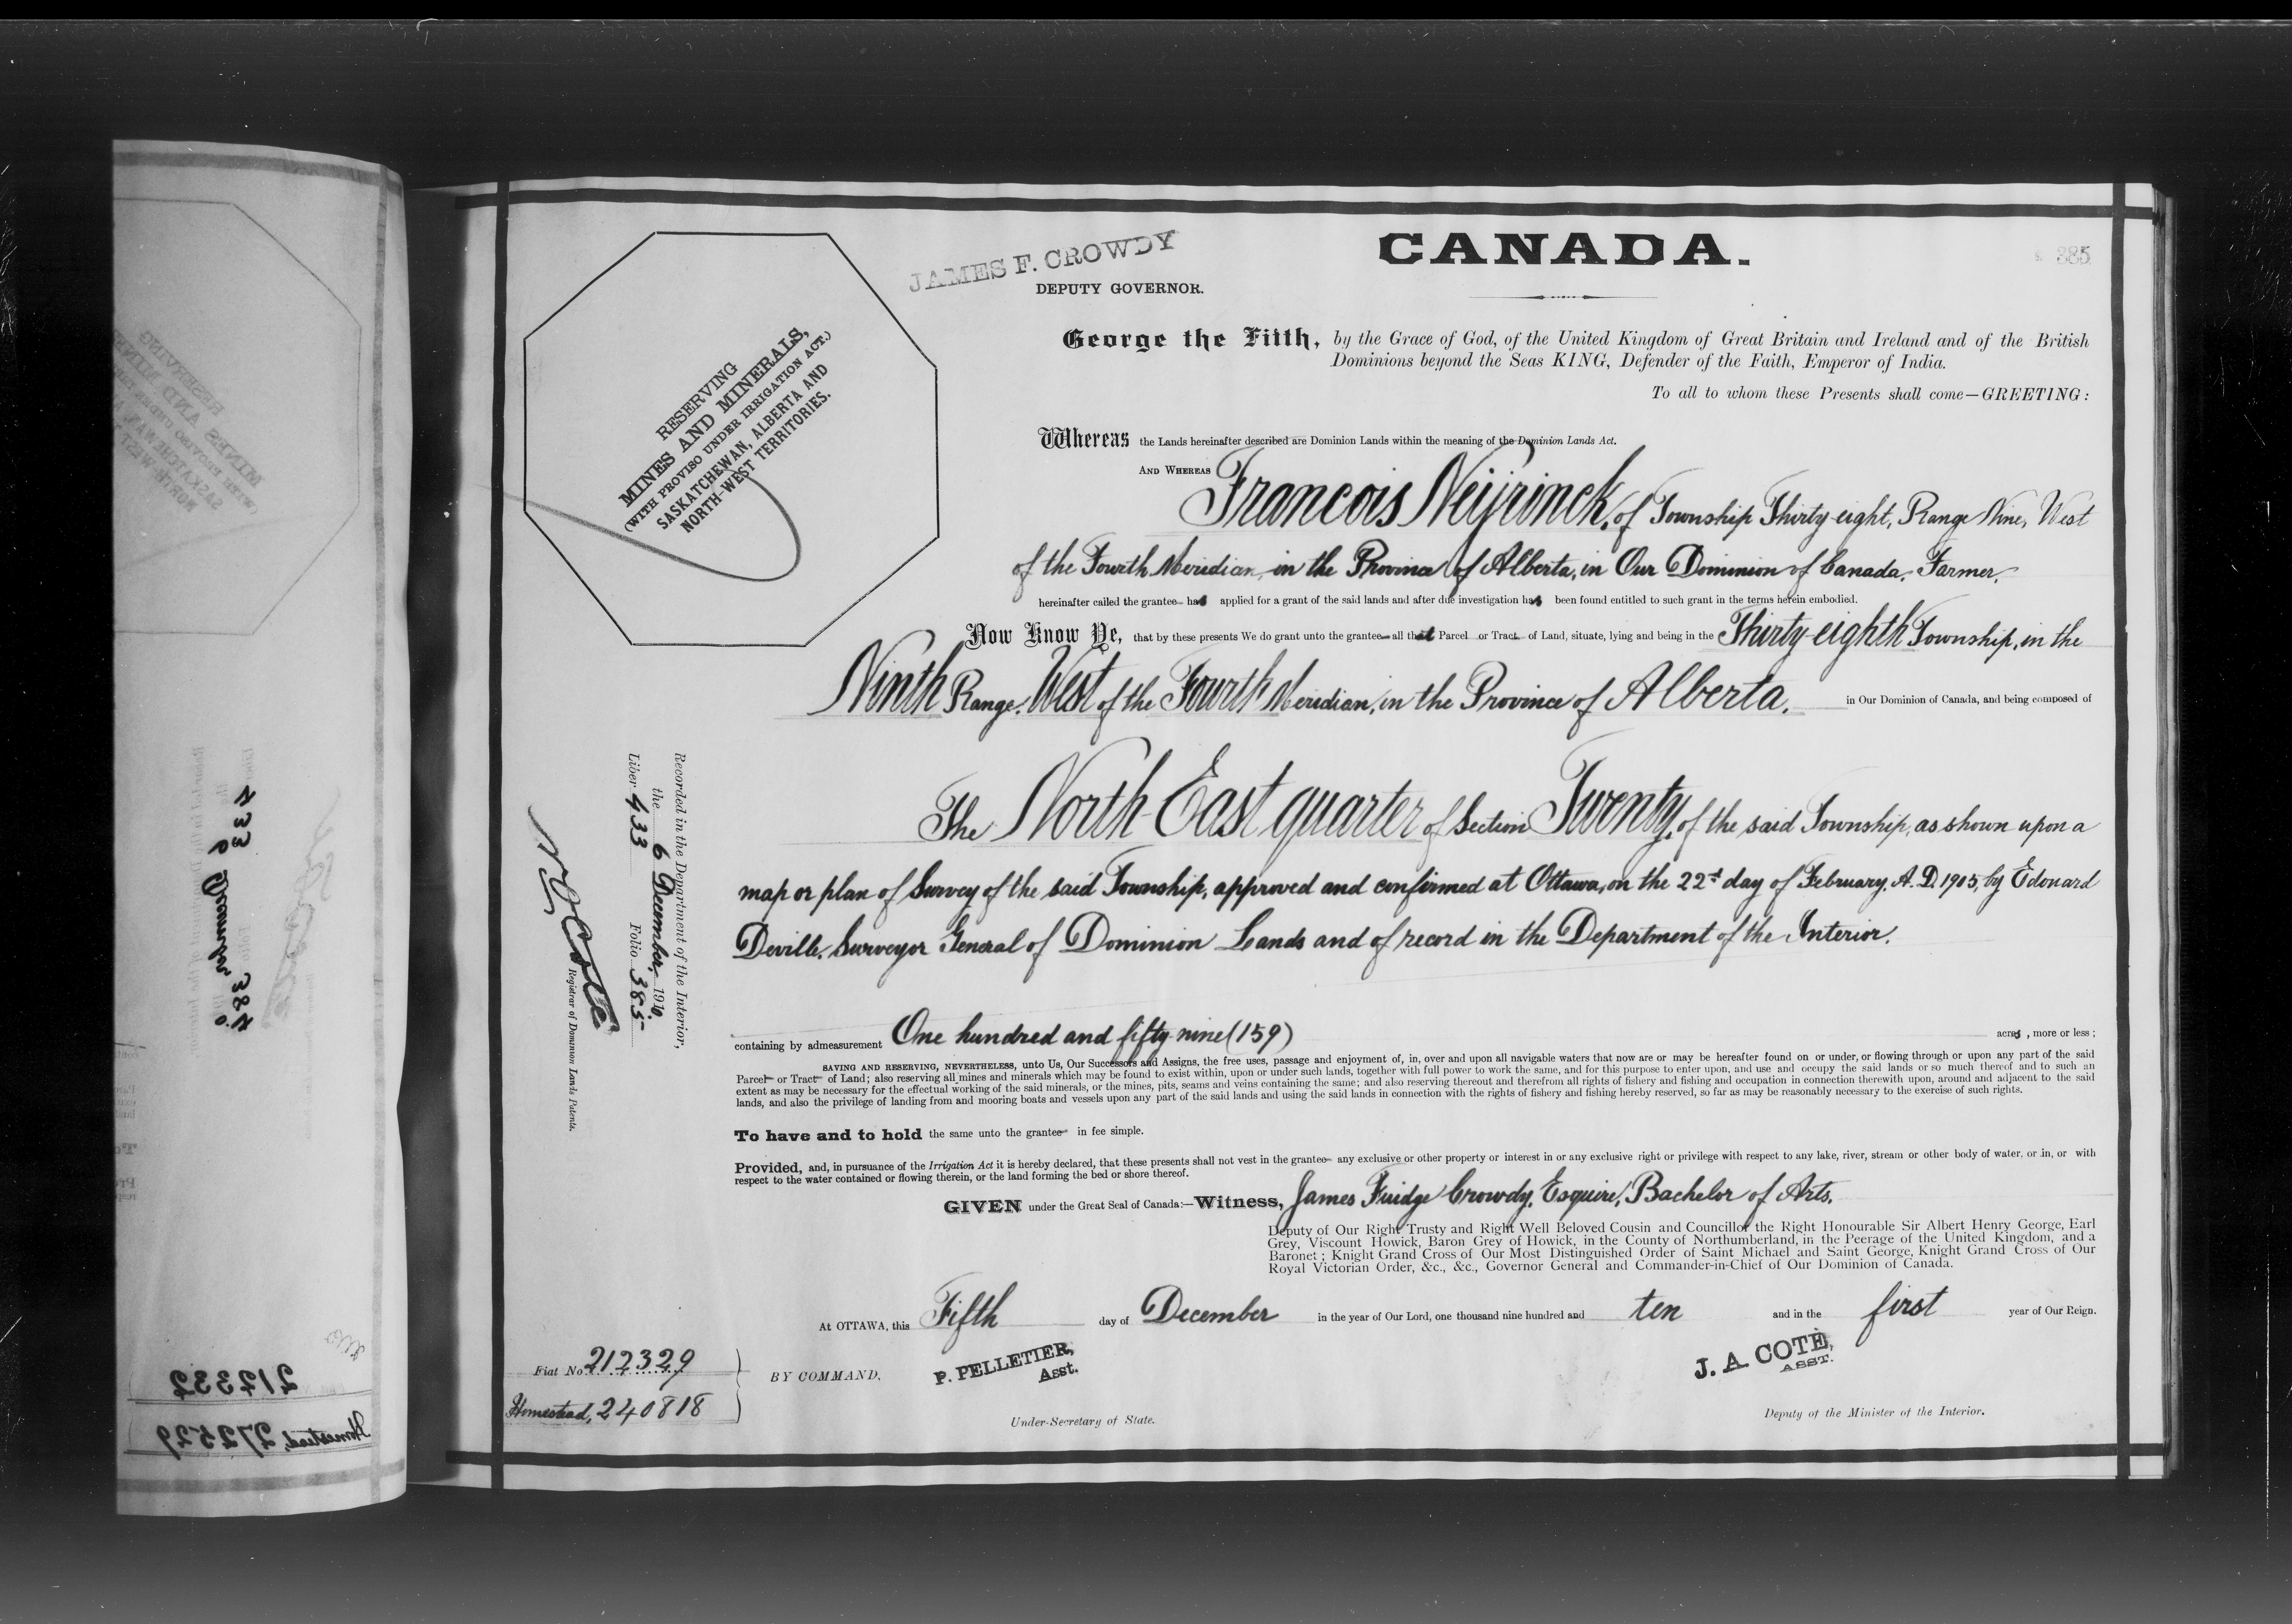 CANADA.
385
JAMES F. CROWDY
DEPUTY GOVERNOR.
RESERVING
MINES AND MINERALS,
(WITH PROVISO UNDER IRRIGATION ACT.)
SASKATCHEWAN, ALBERTA AND
NORTH-WEST TERRITORIES.
George the Fifth, by the Grace of God, of the United Kingdom of Great Britain and Ireland and of the British
Dominions beyond the Seas KING, Defender of the Faith, Emperor of India.
To all to whom these Presents shall come—GREETING:
Whereas the Lands hereinafter described are Dominion Lands within the meaning of the Dominion Lands Act.
AND WHEREAS Francois Neijrinck, of Township Thirty-eight, Range Nine, West
of the Fourth Meridian, in the Province of Alberta, in Our Dominion of Canada, Farmer,
hereinafter called the grantee has applied for a grant of the said lands and after due investigation has been found entitled to such grant in the terms herein embodied.
Now Know Ye, that by these presents We do grant unto the grantee all that Parcel or Tract of Land, situate, lying and being in the Thirty-eighth Township, in the
Ninth Range, West of the Fourth Meridian, in the Province of Alberta, in Our Dominion of Canada, and being composed of
The North East quarter of Section Twenty, of the said Township, as shown upon a
map or plan of Survey of the said Township, approved and confirmed at Ottawa, on the 22d day of February, A.D. 1905, by Edouard
Deville, Surveyor General of Dominion Lands and of record in the Department of the Interior.
containing by admeasurement One hundred and fifty nine (159) acres, more or less;
SAVING AND RESERVING, NEVERTHELESS, unto Us, Our Successors and Assigns, the free uses, passage and enjoyment of, in, over and upon all navigable waters that now are or may be hereafter found on or under, or flowing through or upon any part of the said
Parcel or Tract of Land; also reserving all mines and minerals which may be found to exist within, upon or under such lands, together with full power to work the same, and for this purpose to enter upon, and use and occupy the said lands or so much thereof and to such an
extent as may be necessary for the effectual working of the said minerals, or the mines, pits, seams and veins containing the same; and also reserving thereout and therefrom all rights of fishery and fishing and occupation in connection therewith upon, around and adjacent to the said
lands, and also the privilege of landing from and mooring boats and vessels upon any part of the said lands and using the said lands in connection with the rights of fishery and fishing hereby reserved, so far as may be reasonably necessary to the exercise of such rights.
To have and to hold the same unto the grantee in fee simple.
Provided, and, in pursuance of the Irrigation Act it is hereby declared, that these presents shall not vest in the grantee any exclusive or other property or interest in or any exclusive right or privilege with respect to any lake, river, stream or other body of water, or in, or with
respect to the water contained or flowing therein, or the land forming the bed or shore thereof.
GIVEN under the Great Seal of Canada:—Witness, James Fuidge Crowdy, Esquire, Bachelor of Arts,
Deputy of Our Right Trusty and Right Well Beloved Cousin and Councillor the Right Honourable Sir Albert Henry George, Earl
Grey, Viscount Howick, Baron Grey of Howick, in the County of Northumberland, in the Peerage of the United Kingdom, and a
Baronet; Knight Grand Cross of Our Most Distinguished Order of Saint Michael and Saint George, Knight Grand Cross of Our
Royal Victorian Order, &c., &c., Governor General and Commander-in-Chief of Our Dominion of Canada.
At OTTAWA, this Fifth day of December in the year of Our Lord, one thousand nine hundred and ten and in the first year of Our Reign.
BY COMMAND,
P. PELLETIER,
Asst.
Under-Secretary of State.
J. A. COTE,
ASST.
Deputy of the Minister of the Interior.
Recorded in the Department of the Interior,
the 6 December, 1910
Liber 433 Folio 385
N O Coté
Registrar of Dominion Lands Patents.
Fiat No 212329
Homestead, 240818
212332
Homestead, 272529